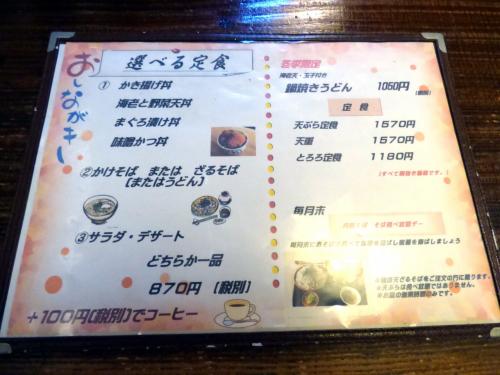 おしながきー
選べる定食
① かき揚げ丼
海老と野菜天丼
まぐろ漬け丼
味噌かつ丼
②かけそば または ざるそば
【またはうどん】
③サラダ・デザート
どちらか一品
870円 【税別】
+100円【税別】でコーヒー
冬季限定
海老天・玉子付き
鍋焼きうどん 1050円
定食
天ぷら定食 1570円
天重 1570円
とろろ定食 1180円
(すべて税抜き価格です。)
毎月末
そば食べ放題デー